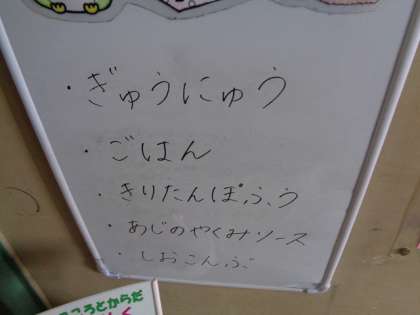 ・ぎゅうにゅう
・ごはん
・きりたんぽふう
・あじのやくみソース
・しおこんぶ
こころとからだ